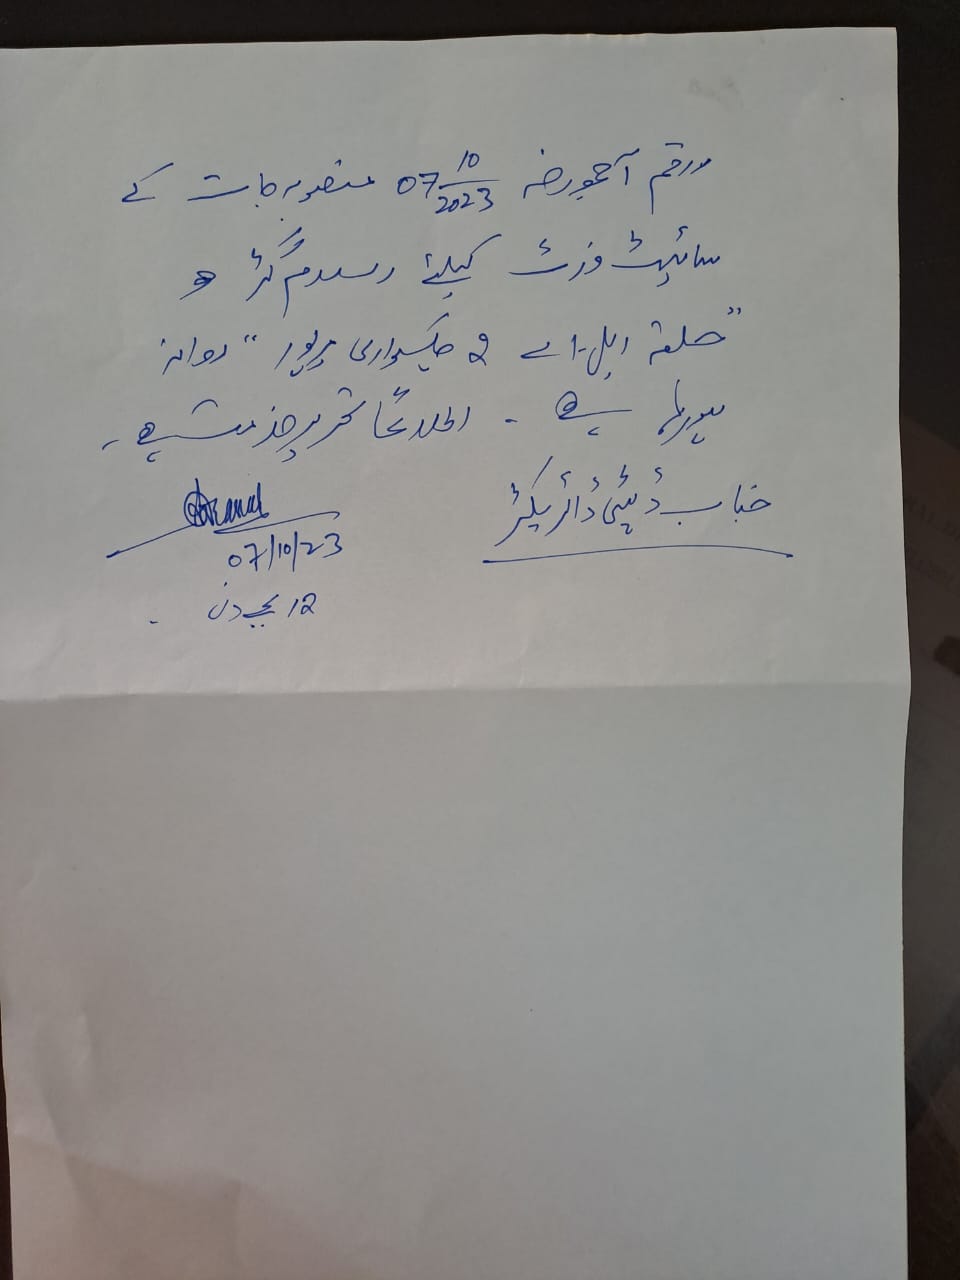 راقم آجمورخہ 07/10/2023 منصوبہ جات کے
سائیٹ وزٹ کیلئے و
"حلقہ ایل-اے 2 چکسواری میرپور" روانہ
ہورہا ہے ۔ اطلاعاً تحریر خدمت ہے ۔
جناب ڈپٹی ڈائریکٹر
07/10/23
12 بجے دن ۔